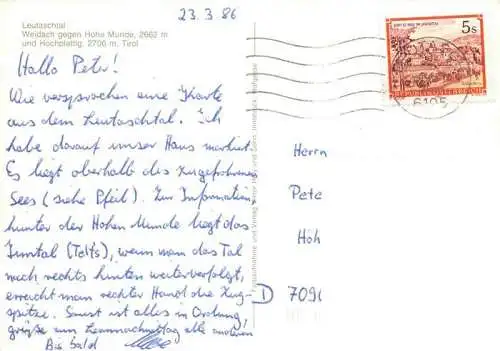 23.3.86
Leutaschtal
Weidach gegen Hohe Munde, 2662 m
und Hochplattig, 2706 m, Tirol
Hallo Peter!
Wie versprochen eine Karte
aus dem Leutaschtal. Ich
habe darauf unser Haus markiert.
Es liegt oberhalb des zugefrohrenen
Sees (siehe Pfeil). Zur Information:
hinter der Hohen Munde liegt das
Inntal (Telfs), wenn man das Tal
nach rechts hinten weiterverfolgt,
erreicht man rechter Hand die Zug-
spitze. Sonst ist alles in Ordnung,
grüße am alle anderen
Bis bald
5s
REPUBLIK ÖSTERREICH
6105
Herrn
Pete
Höh
D 7090